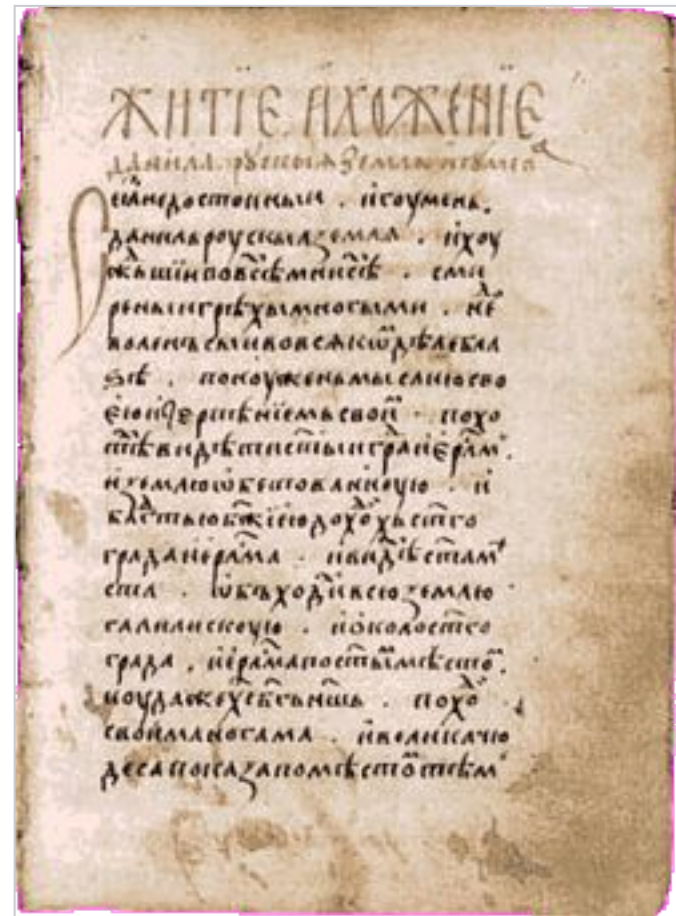 ЖИТЇЕ ИХОЖЕНЇЕ
данила рускыꙗ земли игумен
недостоиныи . игоумень .
данильроускыꙗземлꙗ . ихоу
жьшїиповсѣмнисѣ . сми
реныигрѣхымногыми . не
воленъсыивовсякѡдѣлебла
ѕѣ . поноуженьмыслиюсво
еюи свои . похо
тѣвидѣтистыигра иерлм
изємлюѡбетованноую . и
блгтьюбжїеюдохохъстго
градаиерлма . ивидѣстам
ста . ѡбъходивсюземлю
галилискоую . иоколостго
града . иерлмапостымѣсто .
хсбгъншь . похо
своиманогама . ивеликачю
десапоказапомѣстотѣм